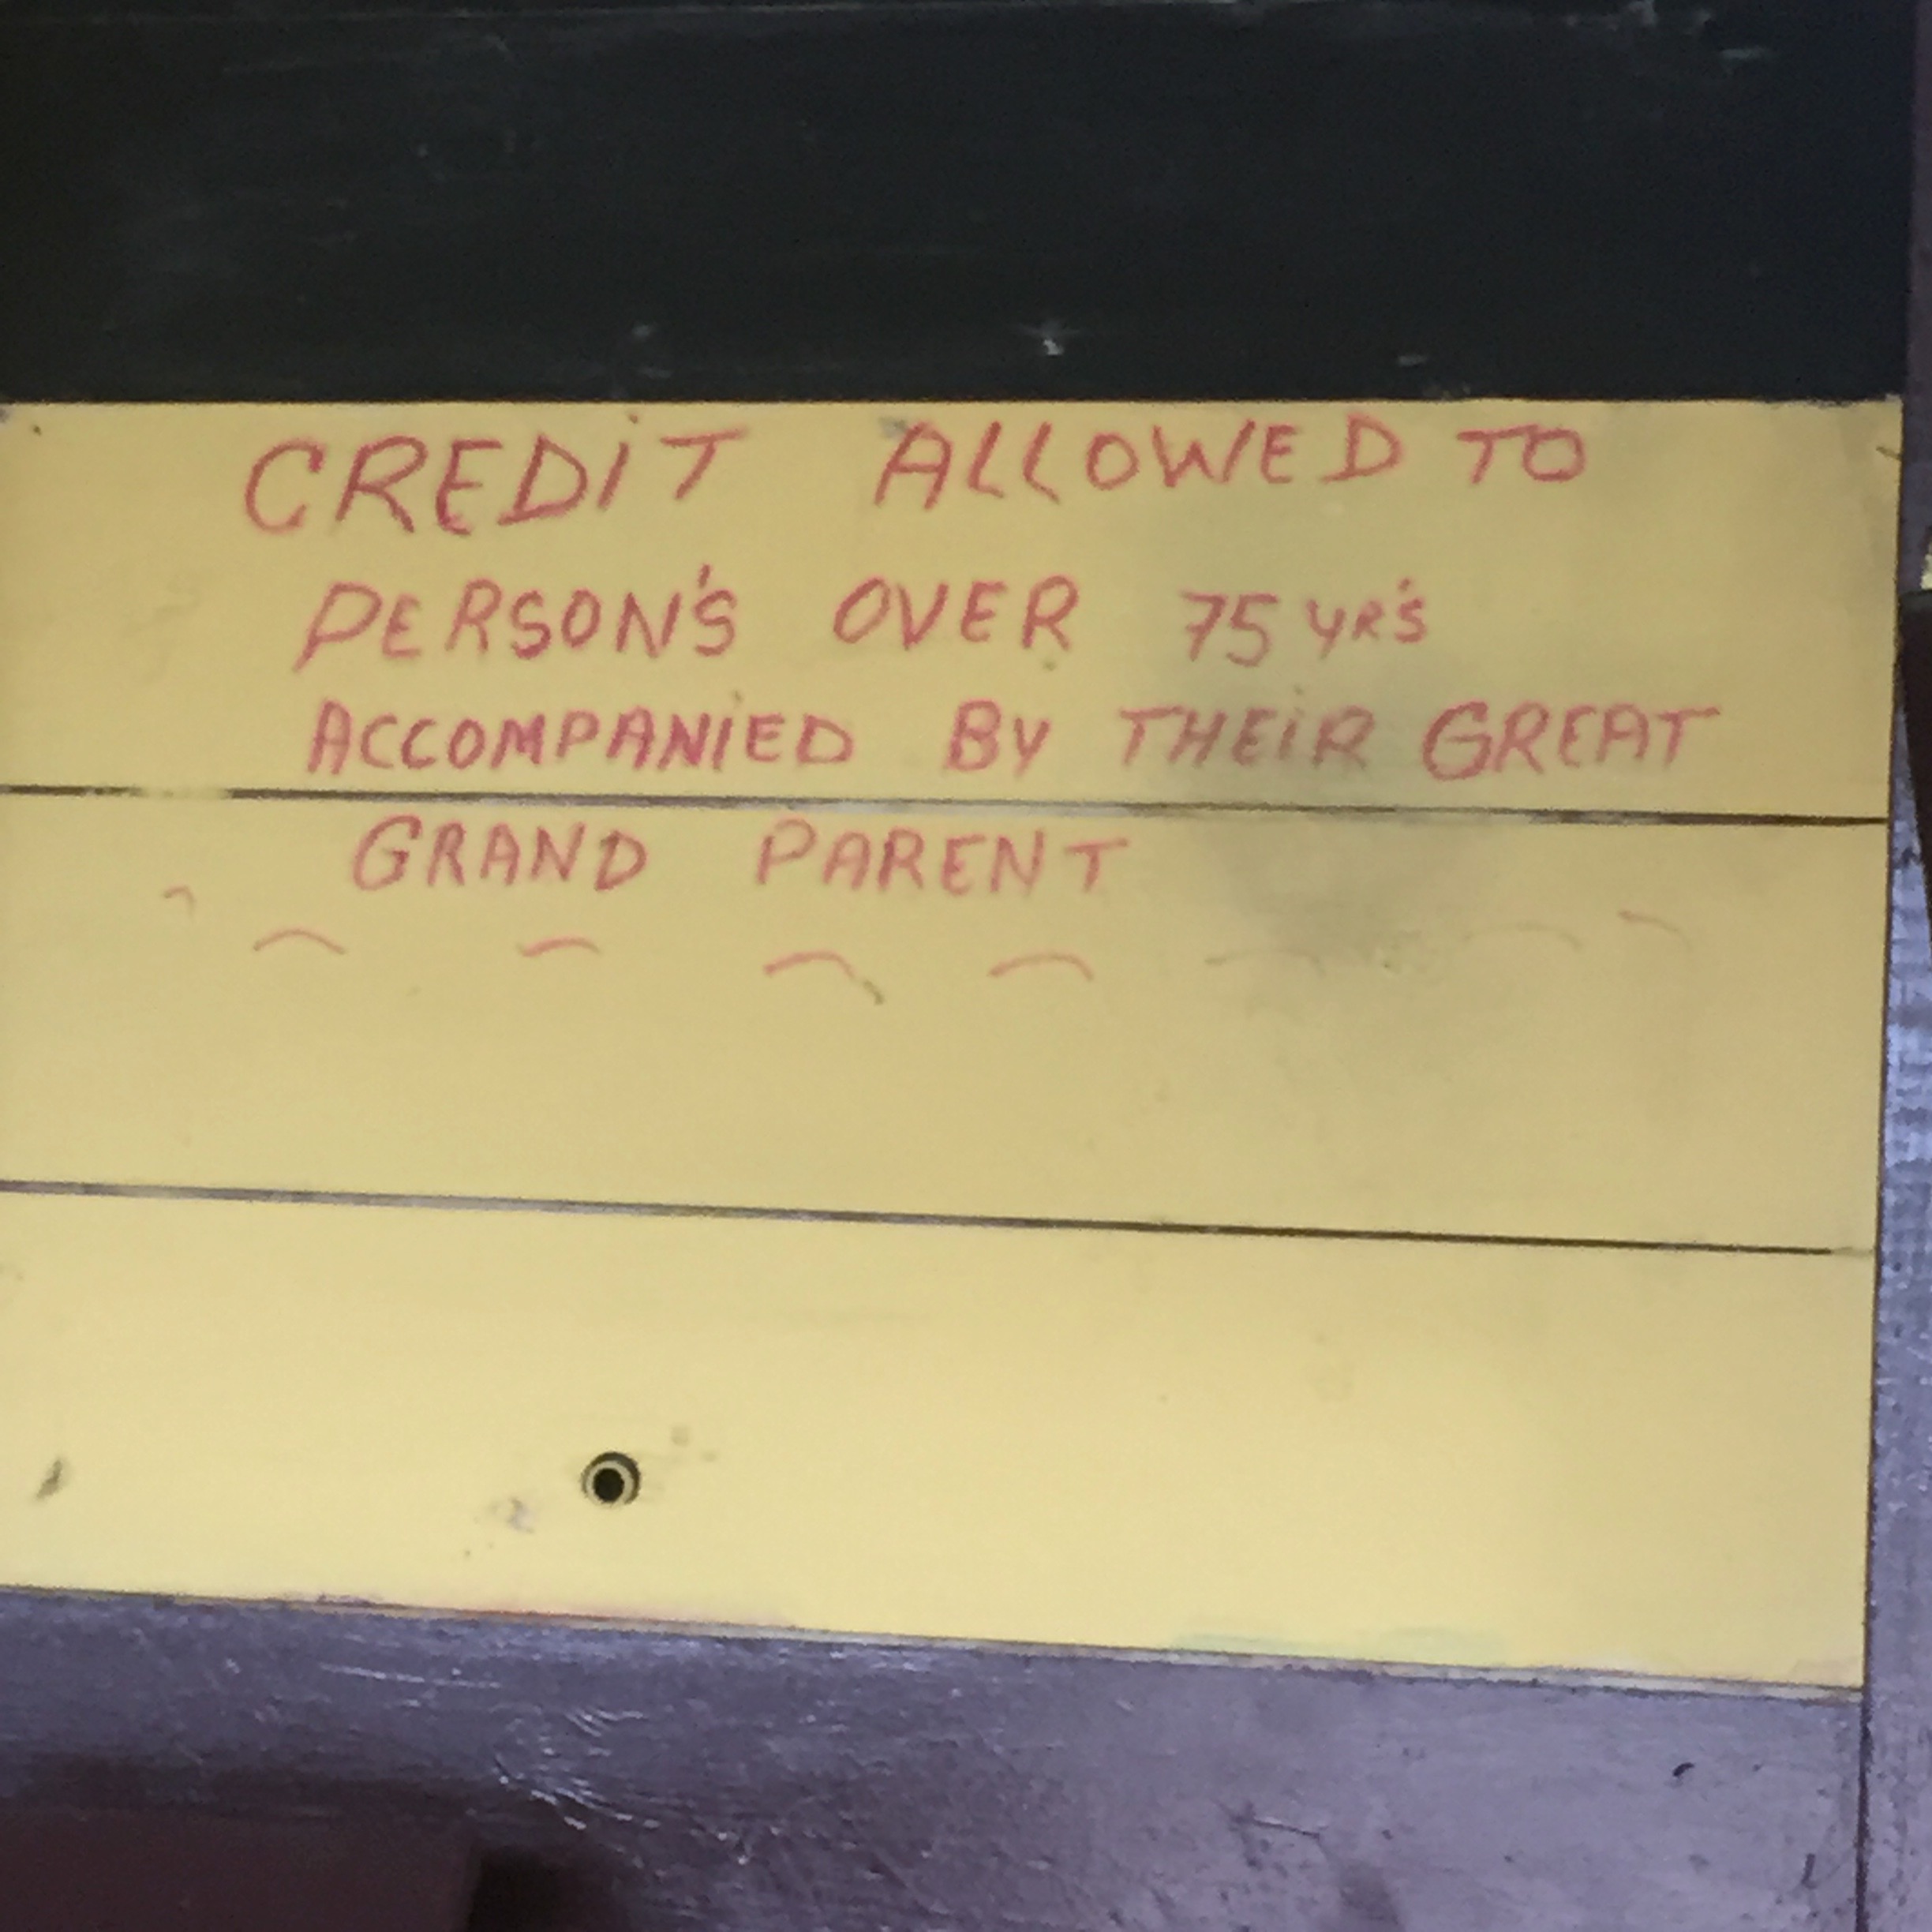 CREDiT ALLOWED TO
PERSON'S OVER 75 YR'S
ACCOMPANiED BY THEiR GREAT
GRAND PARENT